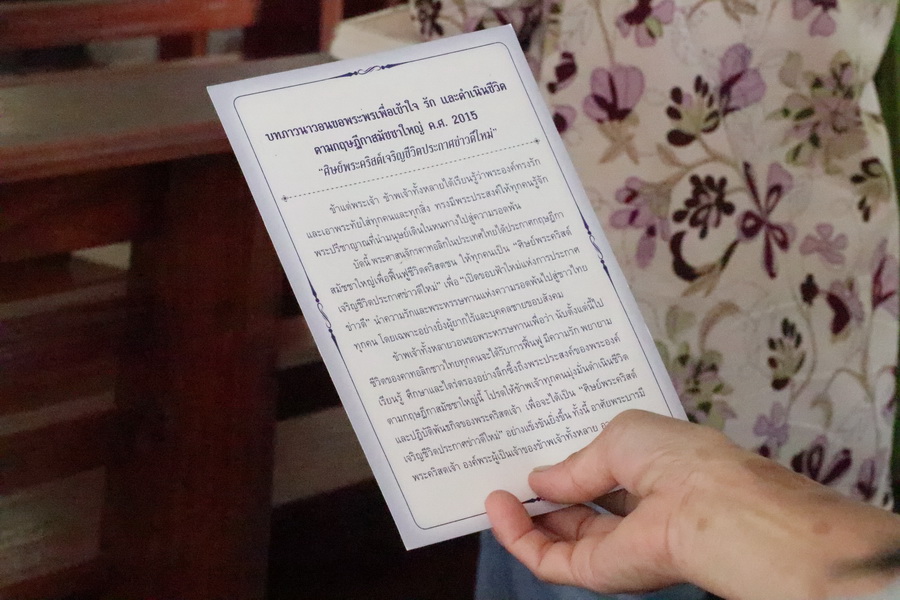 บทภาวนาวอนขอพระพรเพื่อเข้าใจ รัก และดำเนินชีวิต
ตามกฤษฎีกาสมัชชาใหญ่ ค.ศ. 2015
“ศิษย์พระคริสต์เจริญชีวิตประกาศข่าวดีใหม่”
ข้าแต่พระเจ้า ข้าพเจ้าทั้งหลายได้เรียนรู้ว่าพระองค์ทรงรัก
และเอาพระทัยใส่ทุกคนและทุกสิ่ง ทรงมีพระประสงค์ให้ทุกคนรู้จัก
พระปรีชาญาณที่นำมนุษย์เดินในหนทางไปสู่ความรอดพ้น
บัดนี้ พระศาสนจักรคาทอลิกในประเทศไทยได้ประกาศกฤษฎีกา
สมัชชาใหญ่เพื่อฟื้นฟูชีวิตคริสตชน ให้ทุกคนเป็น “ศิษย์พระคริสต์
เจริญชีวิตประกาศข่าวดีใหม่” เพื่อ “เปิดขอบฟ้าใหม่แห่งการประกาศ
ข่าวดี” นำความรักและพระหรรษทานแห่งความรอดพ้นไปสู่ชาวไทย
ทุกคน โดยเฉพาะอย่างยิ่งผู้ยากไร้และบุคคลชายขอบสังคม
ข้าพเจ้าทั้งหลายวอนขอพระหรรษทานเพื่อว่า นับตั้งแต่นี้ไป
ชีวิตของคาทอลิกชาวไทยทุกคนจะได้รับการฟื้นฟู มีความรัก พยายาม
เรียนรู้ ศึกษาและไตร่ตรองอย่างลึกซึ้งถึงพระประสงค์ของพระองค์
ตามกฤษฎีกาสมัชชาใหญ่นี้ โปรดให้ข้าพเจ้าทุกคนมุ่งมั่นดำเนินชีวิต
และปฏิบัติพันธกิจของพระคริสตเจ้า เพื่อจะได้เป็น “ศิษย์พระคริสต์
เจริญชีวิตประกาศข่าวดีใหม่” อย่างเข้มข้นยิ่งขึ้น ทั้งนี้ อาศัยพระบารมี
พระคริสตเจ้า องค์พระผู้เป็นเจ้าของข้าพเจ้าทั้งหลาย